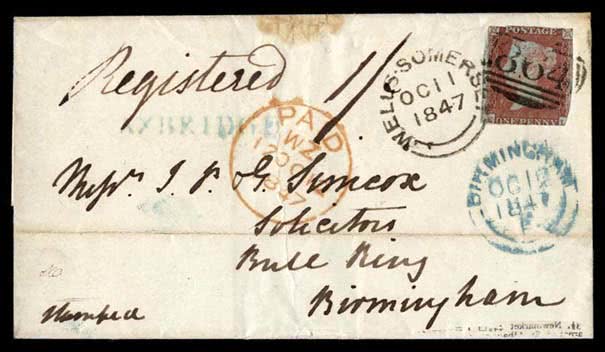 POSTAGE
864
ONE PENNY
Registered 1/
WELLS-SOMERSET
OC 11
1847
AXBRIDGE
PAID
1847
BIRMINGHAM
OC 12
1847
Messrs. J. & G. Simcox
Solicitors
Bull Ring
Birmingham
Stamped